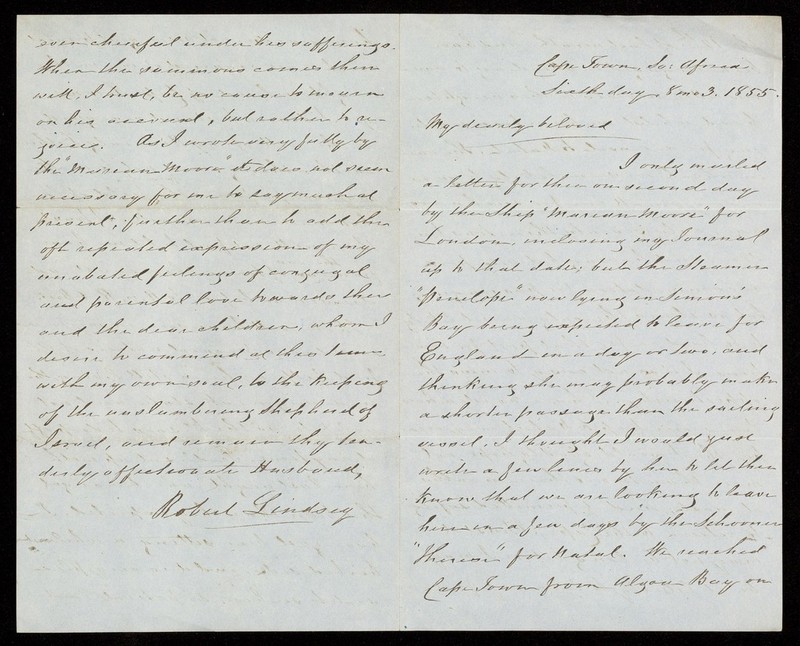 Cape Town, So: Africa
Sixth day, 8 mo 3. 1855.
My dearly beloved
I only mailed
a letter for thee on second day
by the Ship "Marian Moore" for
London, inclosing my Journal
up to that date; but the Steamer
"Penelope" now lying in Simon's
Bay being expected to leave for
England in a day or two, and
thinking she may probably make
a shorter passage than the sailing
vessel, I thought I would just
write a few lines by her to let thee
know that we are looking to leave
here in a few days by the Schooner
for Natal. We reached
Cape Town from Algoa Bay on
even cheerful under his sufferings.
When the summons comes there
will, I trust, be no cause to mourn
on his account, but rather to re-
joice. As I wrote very fully by
the "Marian Moore," it does not seem
necessary for me to say much at
present, further than to add the
oft repeated expression of my
unabated feelings of conjugal
and parental love towards thee
and the dear children, whom I
desire to commend at this time
with my own soul, to the keeping
of the unslumbering Shepherd of
Israel, and remain thy ten-
derly affectionate Husband,
Robert Lindsey